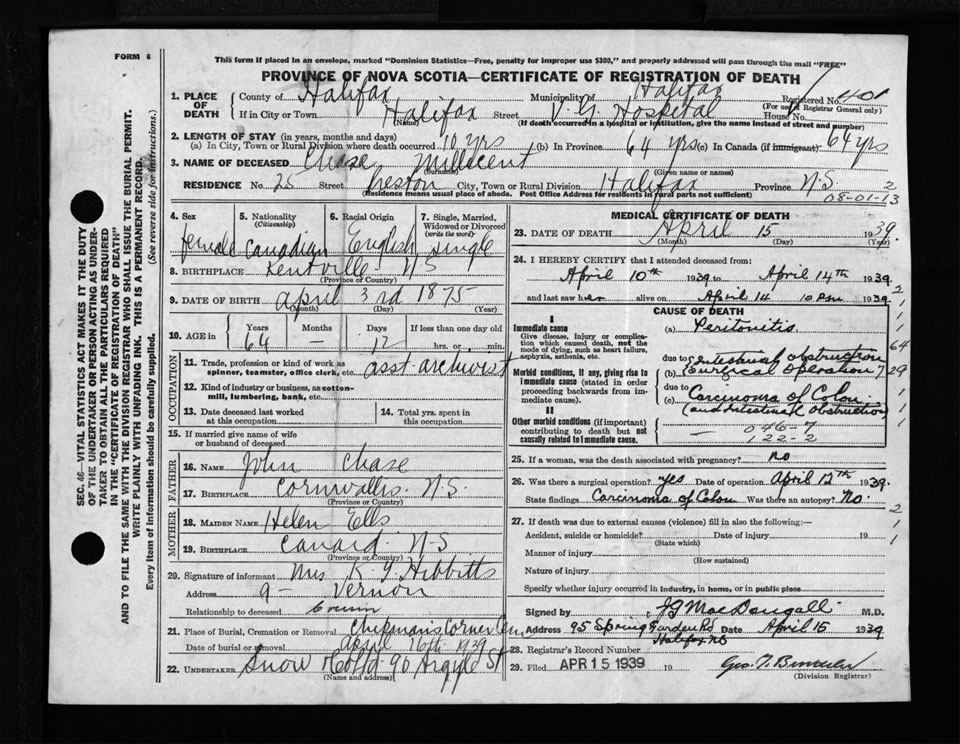 FORM 6
This form if placed in an envelope, marked "Dominion Statistics—Free, penalty for improper use $300," and properly addressed will pass through the mail "FREE"
PROVINCE OF NOVA SCOTIA—CERTIFICATE OF REGISTRATION OF DEATH
1. PLACE OF DEATH County of Halifax Municipality of Halifax Registered No. 401
(For use of Registrar General only)
If in City or Town Halifax Street V. G. Hospital House No.
(Name) (If death occurred in a hospital or institution, give the name instead of street and number)
2. LENGTH OF STAY (in years, months and days)
(a) In City, Town or Rural Division where death occurred 10 yrs (b) In Province 64 yrs (c) In Canada (if immigrant) 64 yrs
3. NAME OF DECEASED Chase Millicent
(Surname) (Given name or names)
RESIDENCE No. 25 Street Preston City, Town or Rural Division Halifax Province N.S. 2
(Residence means usual place of abode. Post Office Address for residents in rural parts not sufficient) 08-01-13
4. Sex female
5. Nationality (Citizenship) Canadian
6. Racial Origin English
7. Single, Married, Widowed or Divorced (write the word) single
8. BIRTHPLACE Kentville N S
(Province or Country)
9. DATE OF BIRTH April 3rd 1875
(Month) (Day) (Year)
10. AGE in Years 64 Months — Days 12 If less than one day old hrs. or min.
OCCUPATION
11. Trade, profession or kind of work as spinner, teamster, office clerk, etc. asst archivist
12. Kind of industry or business, as cotton-mill, lumbering, bank, etc.
13. Date deceased last worked at this occupation
14. Total yrs. spent in this occupation
15. If married give name of wife or husband of deceased
FATHER
16. NAME John Chase
17. BIRTHPLACE Cornwallis N.S.
(Province or Country)
MOTHER
18. MAIDEN NAME Helen Ells
19. BIRTHPLACE Canard N S
(Province or Country)
20. Signature of informant Mrs K. G. Hibbitts
Address 9 - Vernon
Relationship to deceased Cousin
21. Place of Burial, Cremation or Removal Chipmans Corner Cem
Date of burial or removal April 16th 1939
22. UNDERTAKER Snow & Co Ltd 90 Argyle St
(Name and address)
MEDICAL CERTIFICATE OF DEATH
23. DATE OF DEATH April 15 1939.
(Month) (Day) (Year)
24. I HEREBY CERTIFY that I attended deceased from:
April 10th 1939 to April 14th 1939
and last saw her alive on April 14 10 pm 1939
CAUSE OF DEATH
I
Immediate cause
Give disease, injury or complication which caused death, not the mode of dying, such as heart failure, asphyxia, asthenia, etc.
(a) Peritonitis
due to Intestinal obstruction
Morbid conditions, if any, giving rise to immediate cause (stated in order proceeding backwards from immediate cause).
(b) Surgical Operation
due to
(c) Carcinoma of Colon
(and Intestinal Obstruction)
II
Other morbid conditions (if important) contributing to death but not causally related to immediate cause.
— 046-7
122-2
25. If a woman, was the death associated with pregnancy? No
26. Was there a surgical operation? Yes Date of operation April 12th 1939.
State findings Carcinoma of Colon Was there an autopsy? No.
27. If death was due to external causes (violence) fill in also the following:—
Accident, suicide or homicide? Date of injury 19
(State which)
Manner of injury
(How sustained)
Nature of injury
Specify whether injury occurred in Industry, in home, or in public place
Signed by J G MacDougall M.D.
Address 95 Spring Garden Rd Date April 15 1939
Halifax NS
28. Registrar's Record Number
29. Filed APR 15 1939 19
(Division Registrar)
SEC. 46—VITAL STATISTICS ACT MAKES IT THE DUTY
OF THE UNDERTAKER OR PERSON ACTING AS UNDER-
TAKER TO OBTAIN ALL THE PARTICULARS REQUIRED
IN THE "CERTIFICATE OF REGISTRATION OF DEATH"
AND TO FILE THE SAME WITH THE DIVISION REGISTRAR WHO SHALL ISSUE THE BURIAL PERMIT.
WRITE PLAINLY WITH UNFADING INK. THIS IS A PERMANENT RECORD.
Every item of information should be carefully supplied. (See reverse side for instructions.)